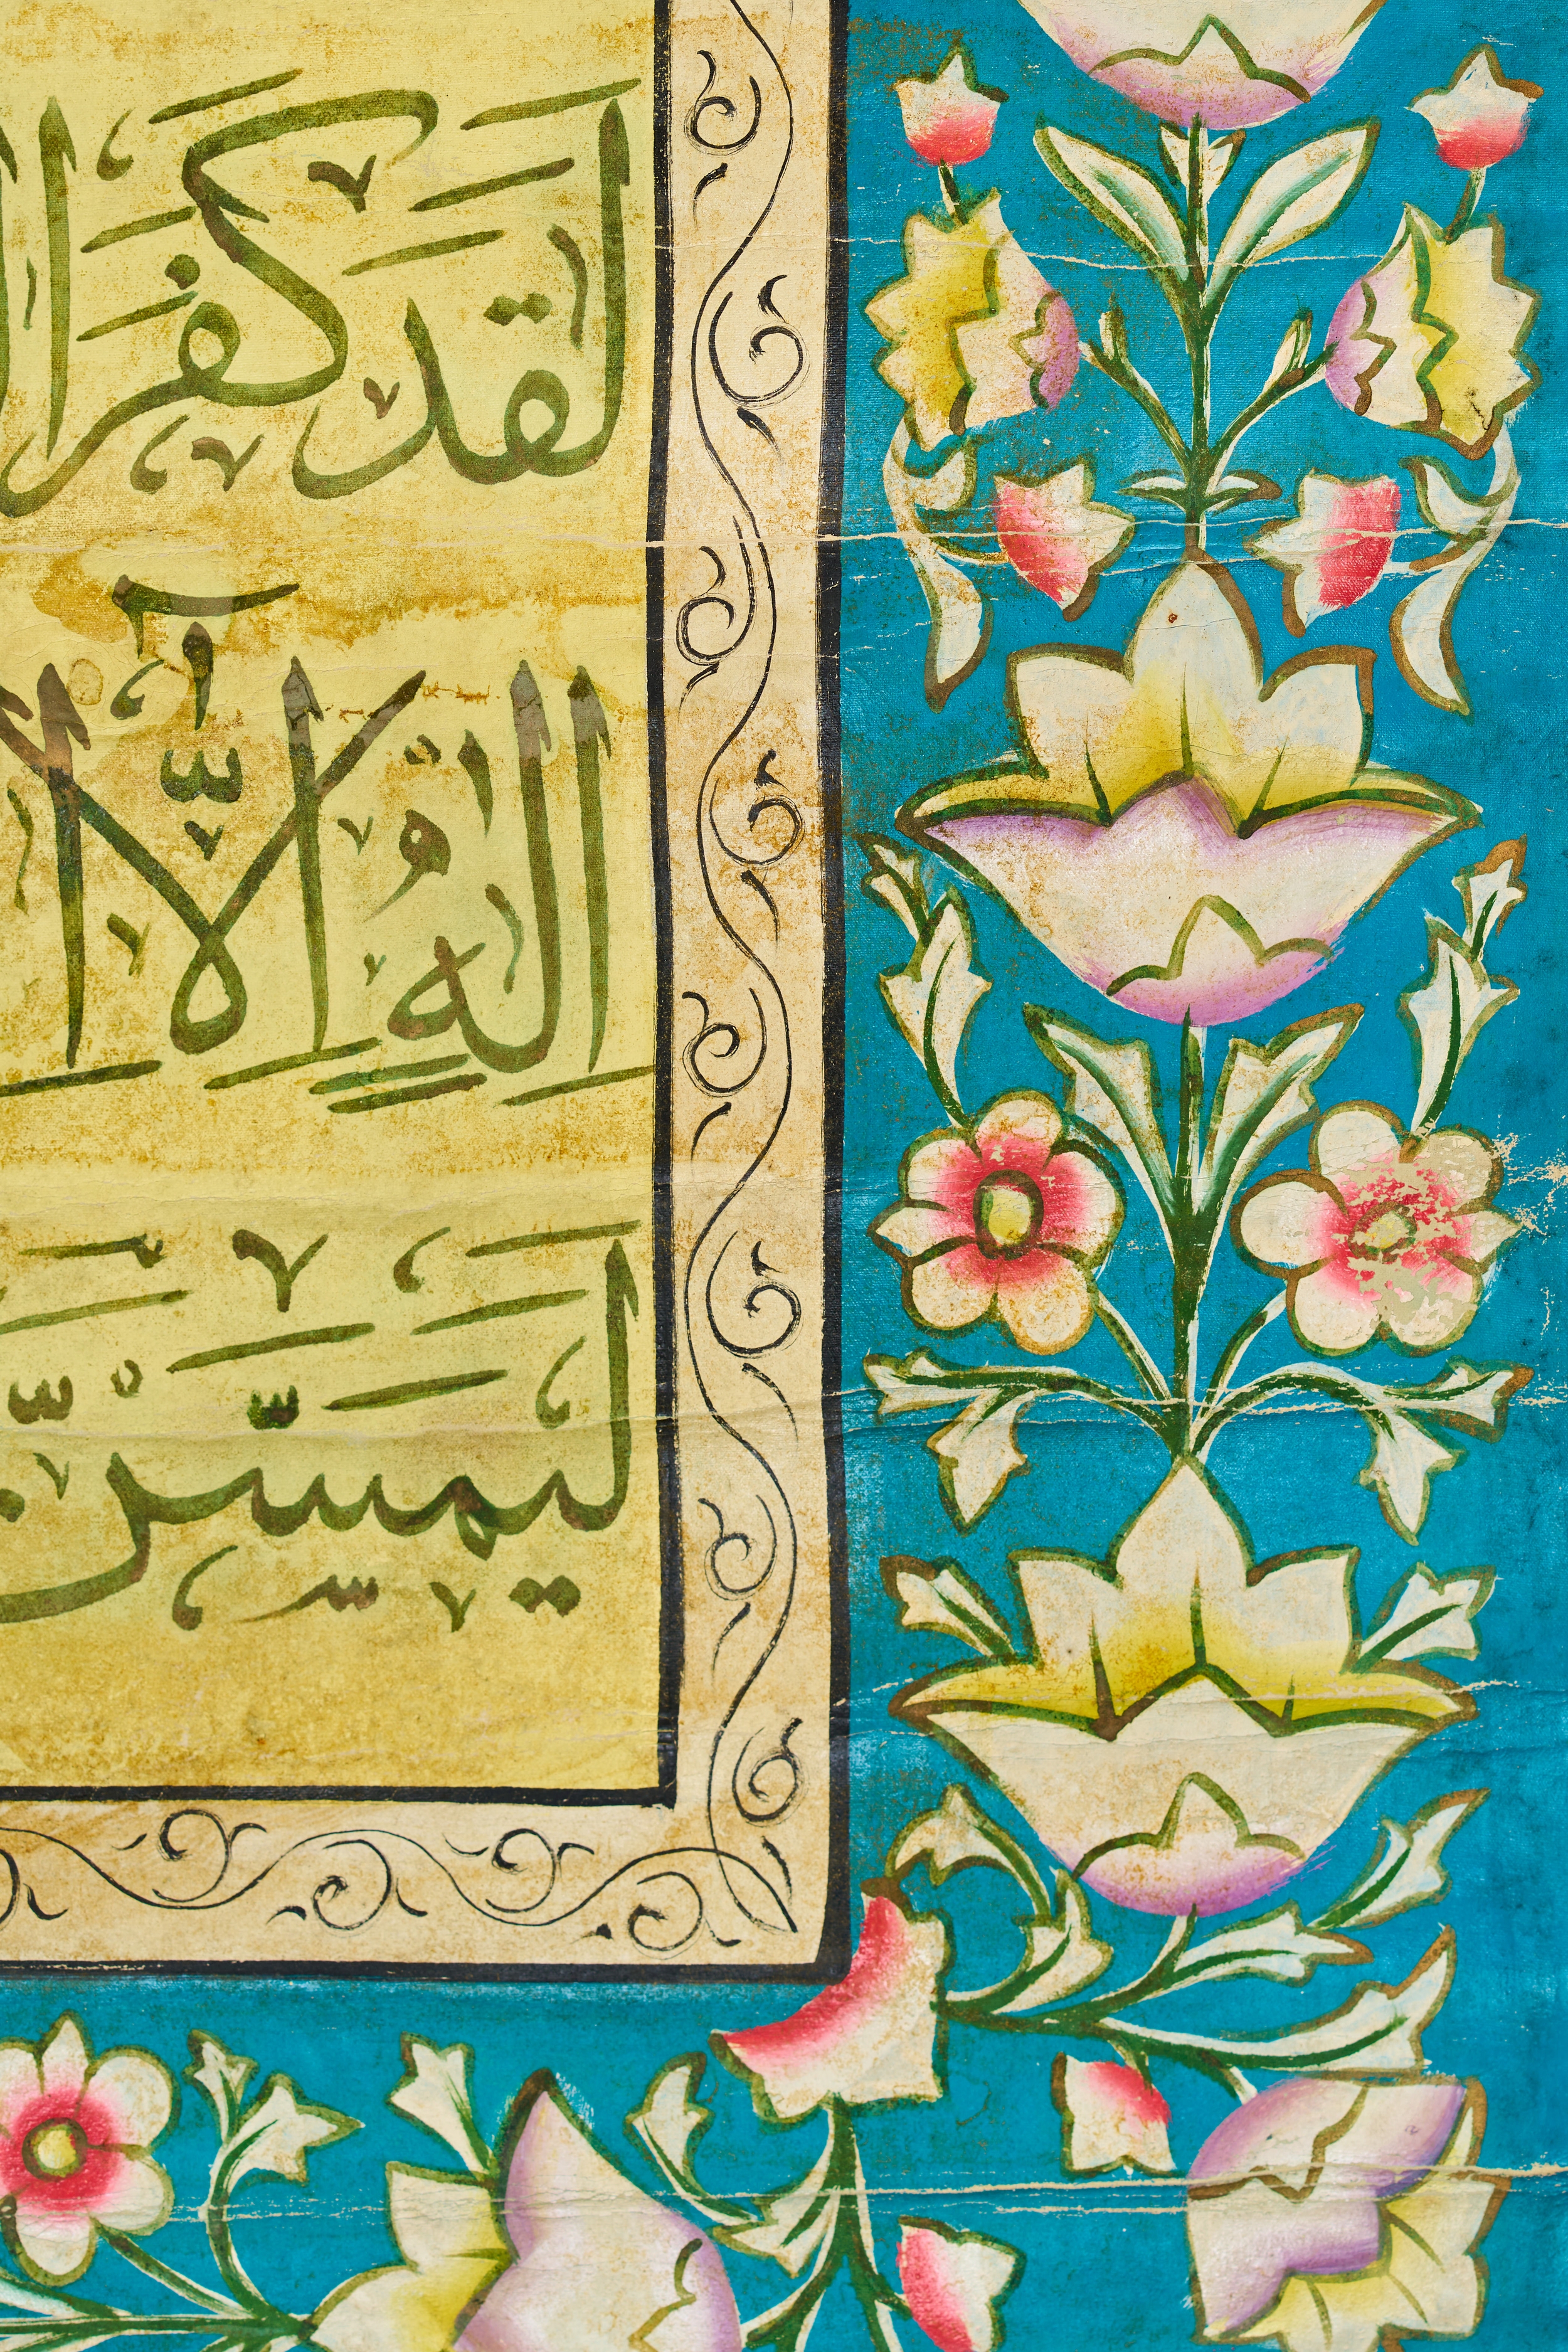 لَقَدْ كَفَرَ ا
اِلٰهٍ اِلَّآ اِ
لَيَمَسَّنَّ